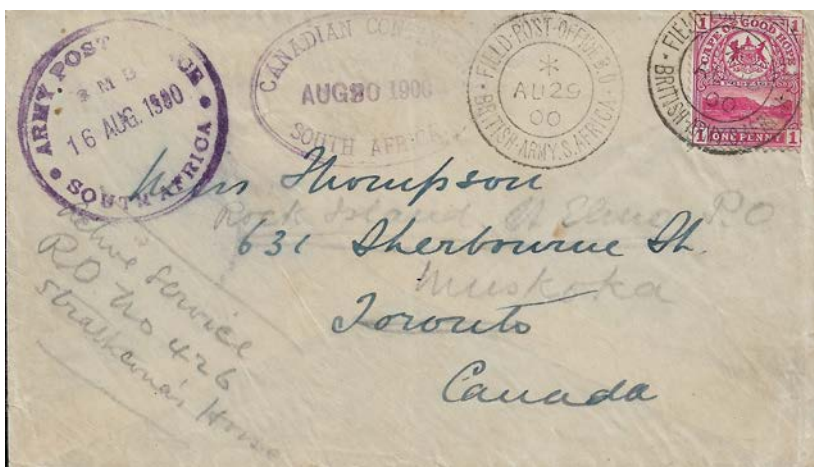 ARMY POST OFFICE
16 AUG. 1900
SOUTH AFRICA
CANADIAN CONTINGENT
AUG 20 1900
SOUTH AFRICA
FIELD-POST-OFFICE B.O
AU 29
00
BRITISH-ARMY.S.AFRICA
FIELD
00
BRITISH-ARMY
1 1
CAPE OF GOOD HOPE
POSTAGE
1 ONE PENNY 1
Miss Thompson
Rock Island, St Elmo P.O
631 Sherbourne St.
Muskoka
Toronto
Canada
Active Service
R.O No 426
Strathcona's Horse